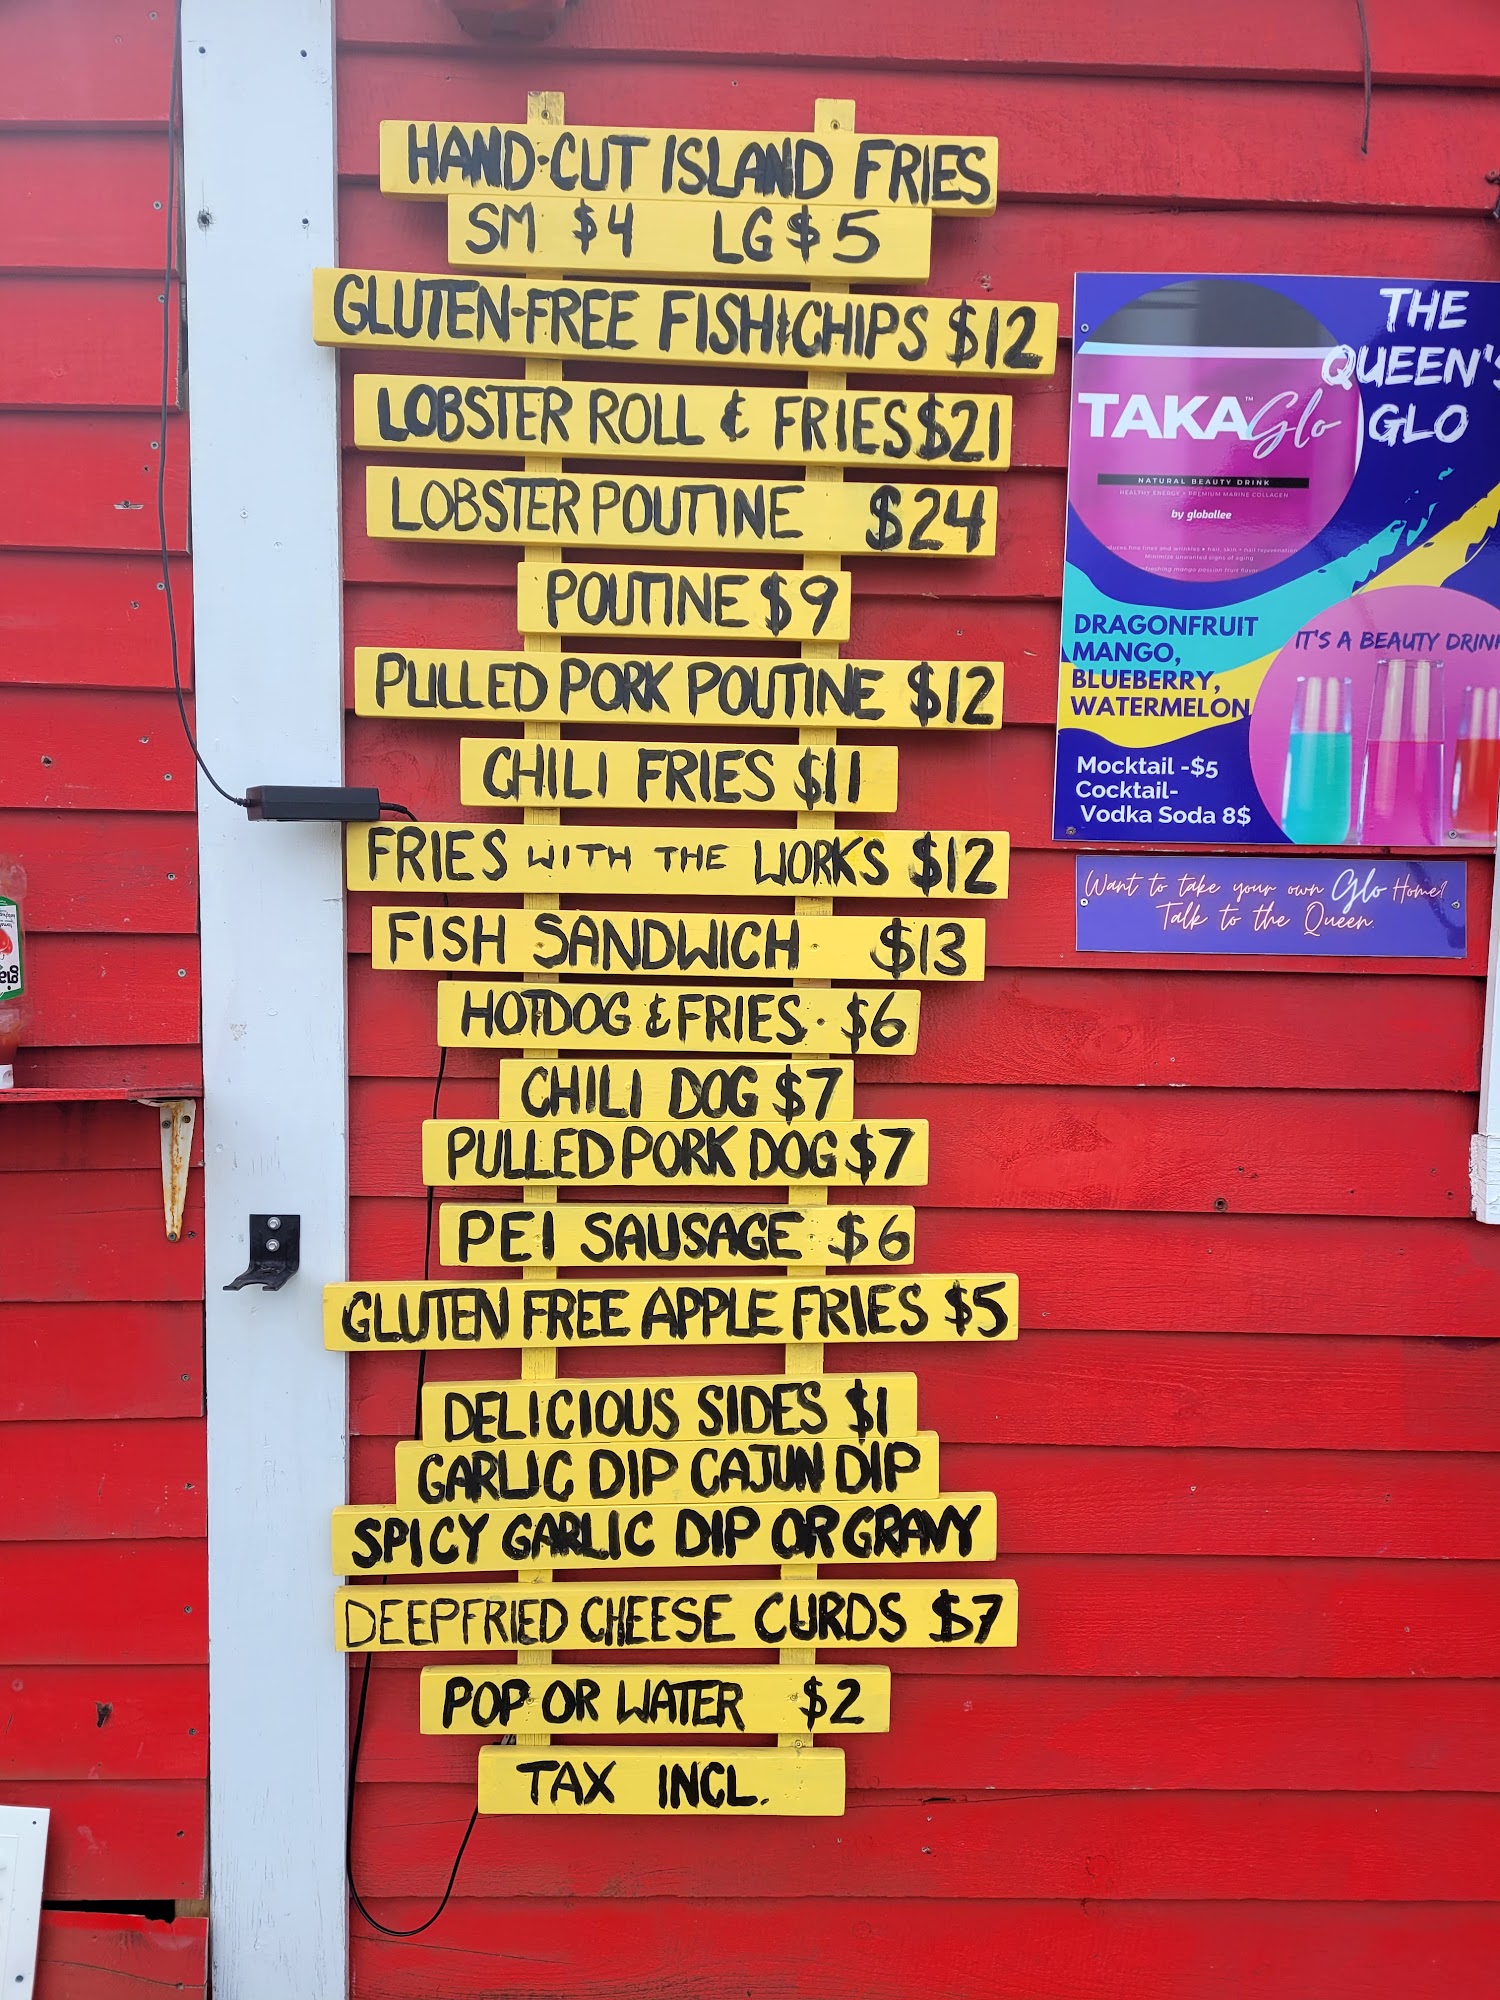 HAND-CUT ISLAND FRIES
SM $4 LG $5
GLUTEN-FREE FISH & CHIPS $12
LOBSTER ROLL & FRIES $21
LOBSTER POUTINE $24
POUTINE $9
PULLED PORK POUTINE $12
CHILI FRIES $11
FRIES WITH THE WORKS $12
FISH SANDWICH $13
HOTDOG & FRIES $6
CHILI DOG $7
PULLED PORK DOG $7
PEI SAUSAGE $6
GLUTEN FREE APPLE FRIES $5
DELICIOUS SIDES $1
GARLIC DIP CAJUN DIP
SPICY GARLIC DIP OR GRAVY
DEEPFRIED CHEESE CURDS $7
POP OR WATER $2
TAX INCL.
THE
QUEEN'S
GLO
TAKA Glo™
NATURAL BEAUTY DRINK
HEALTHY ENERGY + PREMIUM MARINE COLLAGEN
by globallee
fine lines and wrinkles • hair, skin + nail rejuvenation
Minimize unwanted signs of aging
mango passion fruit flavor
DRAGONFRUIT
MANGO,
BLUEBERRY,
WATERMELON
IT'S A BEAUTY DRINK
Mocktail -$5
Cocktail-
Vodka Soda 8$
Want to take your own Glo Home?
Talk to the Queen.